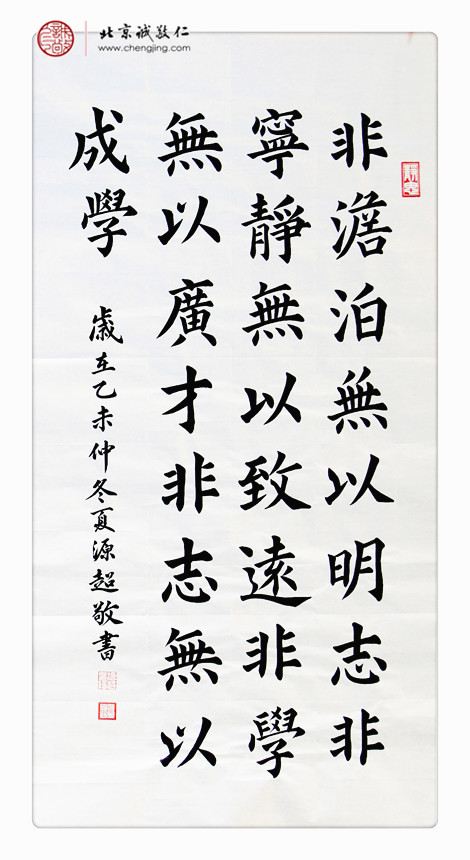 北京诚敬仁
www.chengjing.com
非澹泊無以明志非
寧靜無以致遠非學
無以廣才非志無以
成學
歲在乙未仲冬夏源超敬書